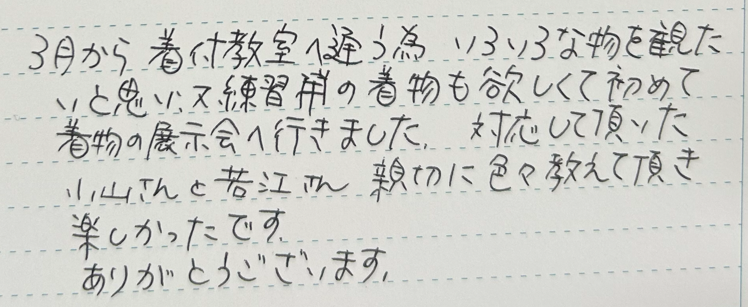 3月から 着付教室へ通う為 いろいろな物を観た
いと思い、又練習用の着物も欲しくて初めて
着物の展示会へ行きました。 対応して頂いた
小山さんと若江さん 親切に色々教えて頂き
楽しかったです。
ありがとうございます。